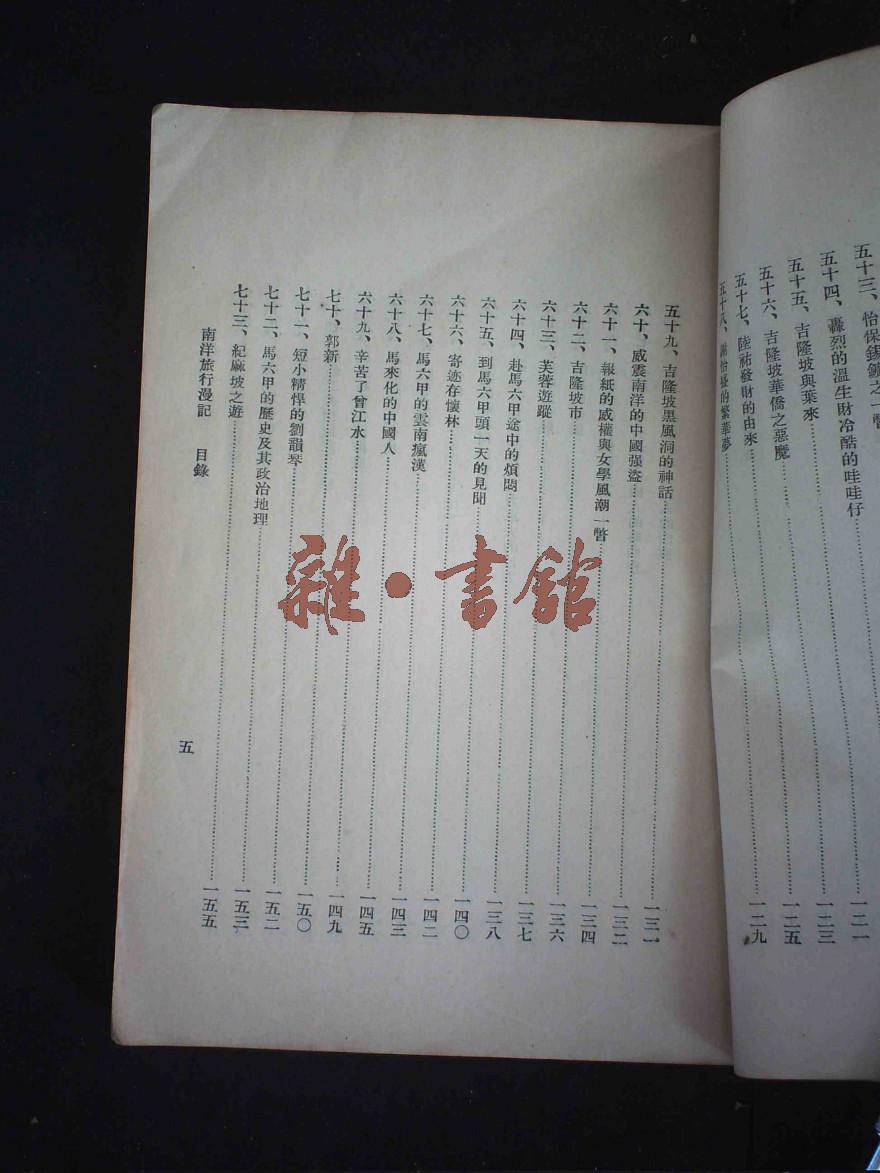 五十三、怡保錫鑛之一瞥
五十四、轟烈的溫生財冷酷的哇哇仔
五十五、吉隆坡與葉來……一二一
五十六、吉隆坡華僑之惡魔……一二三
五十七、陸祐發財的由來……一二五
五十八、的繁華夢……一二九
五十九、吉隆坡黑風洞的神話……一三一
六十、威震南洋的中國强盜……一三二
六十一、報紙的威權與女學風潮一瞥……一三四
六十二、吉隆坡市……一三六
六十三、芙蓉遊蹤……一三七
六十四、赴馬六甲途中的煩悶……一三八
六十五、到馬六甲頭一天的見聞……一四〇
六十六、寄迹存懷林……一四二
六十七、馬六甲的雲南瘋漢……一四三
六十八、馬來化的中國人……一四五
六十九、辛苦了曾江水……一四九
七十、郭新……一五〇
七十一、短小精悍的劉韻琴……一五二
七十二、馬六甲的歷史及其政治地理……一五三
七十三、紀麻坡之遊……一五五
南洋旅行漫記 目錄
五
雜·書館